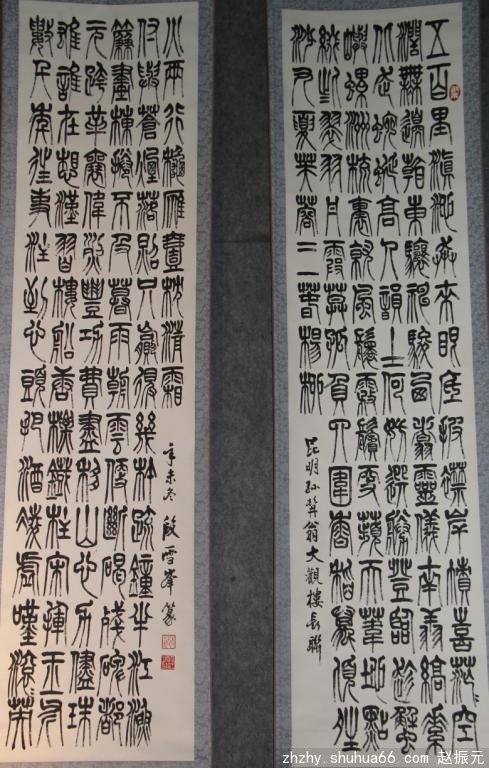 五百里滇池奔來眼底披襟岸幘喜茫〻空
闊無邊看東驤神駿西翥靈儀南翔縞素
北走蜿蜒高人韻士何妨選勝登臨趁蟹
嶼螺洲梳裹就風鬟霧鬢更蘋天葦地點
綴些翠羽丹霞莫孤負四圍香稻萬頃晴
沙九夏芙蓉三春楊柳
昆明孫髯翁大觀樓長聯
數千年往事注到心頭把酒凌虛嘆滾〻英
雄誰在想漢習樓船唐標鐵柱宋揮玉斧
元跨革囊偉烈豐功費盡移山心力儘珠
簾畫棟捲不及暮雨朝雲便斷碣殘碑都
付與蒼煙落照只贏得幾杵疏鐘半江漁
火兩行秋雁壹枕清霜
辛未冬 殷雪峯篆
zhzhy.shuhua66.com 赵振元